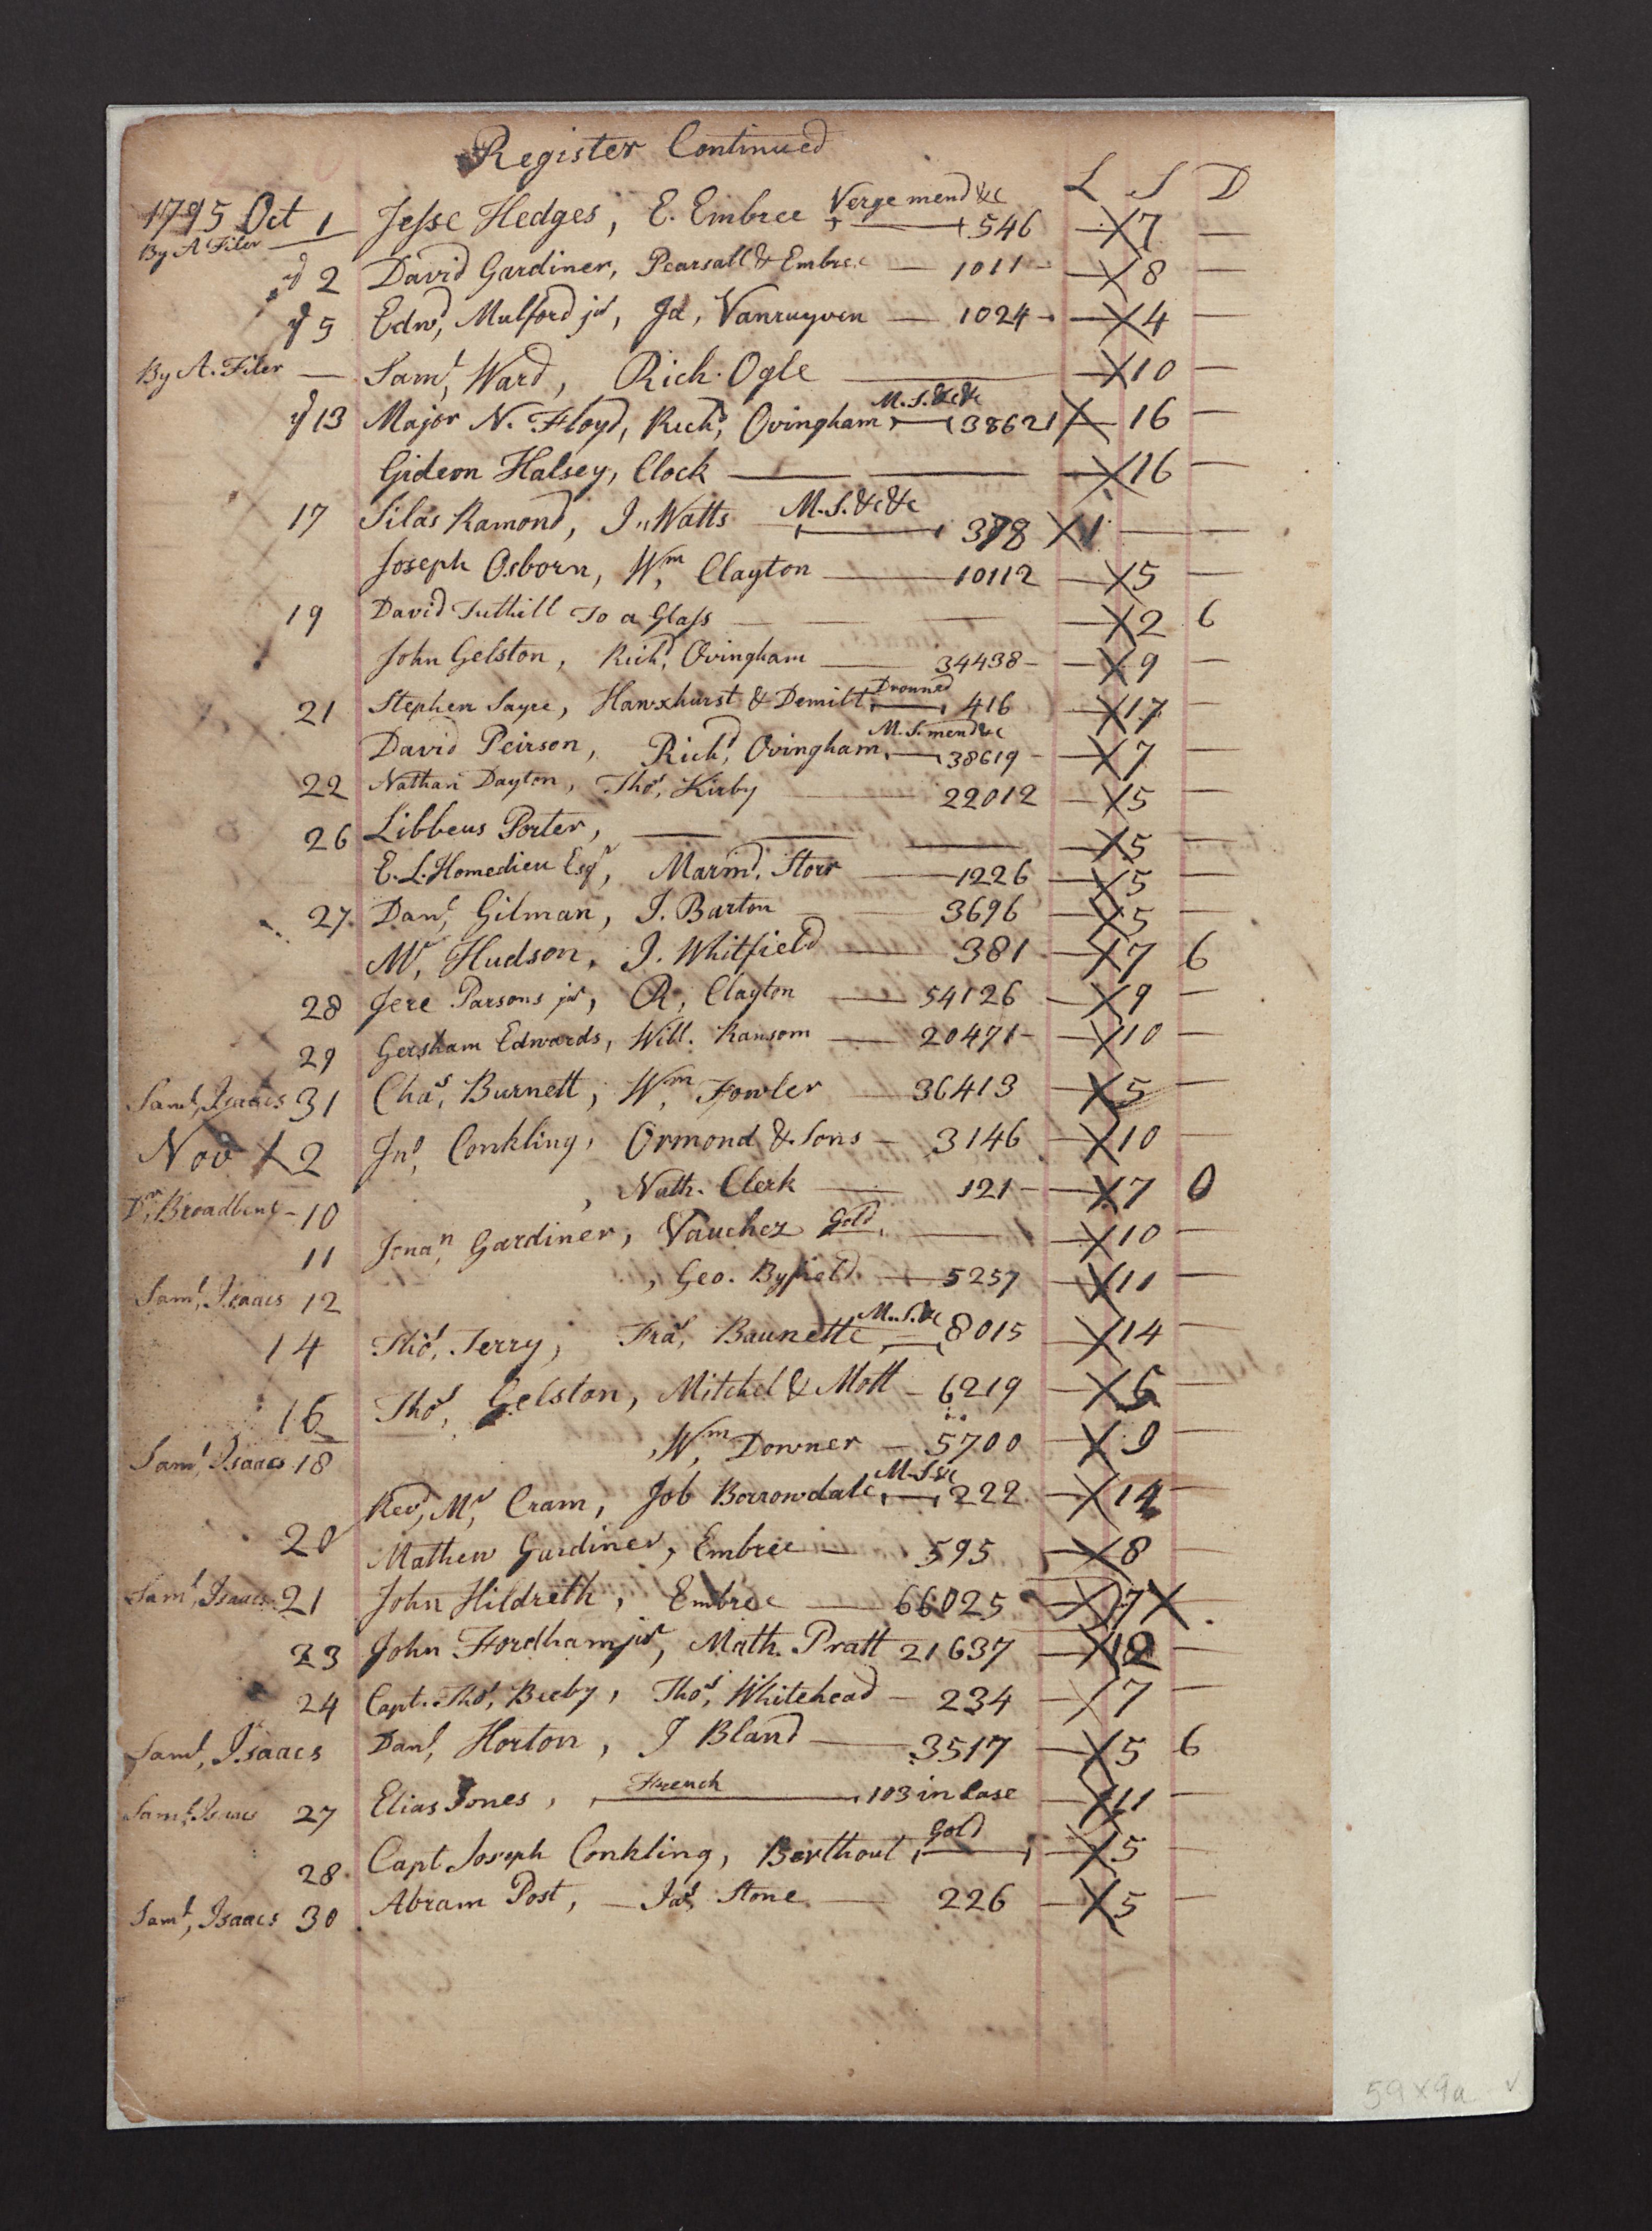 Register Continued
L S D
1795 Oct 1 Jesse Hedges, E. Embree Verge mend &c 546 — X 7 —
By A Filer —
yd 2 David Gardiner, Pearsall & Embree — 1011 — X 8 —
yd 5 Edwd, Mulford jur, Ja, Vanruyven — 1024 — X 4 —
By A. Filer — Saml, Ward, Rich. Ogle — X 10 —
yd 13 Major N. Floyd, Richd, Ovingham M.S.&c&c 38621 X — 16 —
Gideon Halsey, Clock — — — X 16 —
17 Silas Ramond, J,, Watts M.S.&c&c 378 X 1 — —
Joseph Osborn, Wm, Clayton — 10112 — X 5 —
19 David Tuthill To a Glass — — — — X 2 6
John Gelston, Richd, Ovingham — 34438 — — X 9 —
21 Stephen Sayre, Hawxhurst & Demilt Drouned 416 — X 17 —
David Peirson, Richd, Ovingham M.S. mend &c 38619 — — X 7 —
22 Nathan Dayton, Thos, Kirby — 22012 — X 5 —
26 Libbeus Porter, — — — — X 5 —
E. L. Homedieu Esqr, Marmd. Storr — 1226 — X 5 —
27 Danl, Gilman, J. Barton — 3696 — X 5 —
Mr, Hudson, J. Whitfield — 381 — X 7 6
28 Jere Parsons jur, R, Clayton — 54126 — X 9 —
29 Gersham Edwards, Will. Ransom — 20471 — — X 10 —
Saml, Isaacs 31 Chas, Burnett, Wm, Fowler — 36413 — X 5 —
Nov X 2 Jno, Conkling, Ormond & Sons — 3146 — X 10 —
Dr, Broadbent — 10 , Nath. Clerk — 121 — — X 7 0
11 Jonan, Gardiner, Vauchez Gold — — X 10 —
Saml, Isaacs 12 , Geo. Byfield — 5257 — X 11 —
14 Thos, Terry, Fras, Baunette M.S.&c 8015 — X 14 —
16 Thos, Gelston, Mitchel & Mott — 6219 — X 6 —
Saml, Isaacs 18 , Wm, Downer — 5700 — X 9 —
Revd, Mr, Cram, Job Borrowdale M.S&c 222 — X 14 —
20 Mathew Gardiner, Embree — 595 — X 8 —
Saml, Isaacs 21 John Hildreth, Embree — 66025 — X 7 X
23 John Fordham jur, Math. Pratt 21637 — X 12 —
24 Capt. Thos, Beeby, Thos, Whitehead — 234 — X 7 —
Saml, Isaacs Danl, Horton, J Bland — 3517 — X 5 6
Saml, Isaacs 27 Elias Jones, French 103 in Case — X 11 —
28 Capt Joseph Conkling, Berthout, Gold — X 5 —
Saml, Isaacs 30 Abram Post, — Jas, Stone — 226 — X 5 —
59x9a